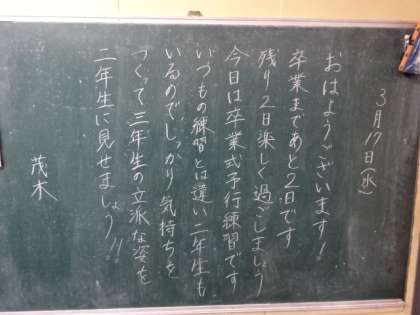 3月17日(水)
おはようございます!
卒業まであと2日です
残り2日楽しく過ごしましょう
今日は卒業式予行練習です
いつもの練習とは違い二年生も
いるのでしっかり気持ちを
つくって三年生の立派な姿を
二年生に見せましょう!!
茂木